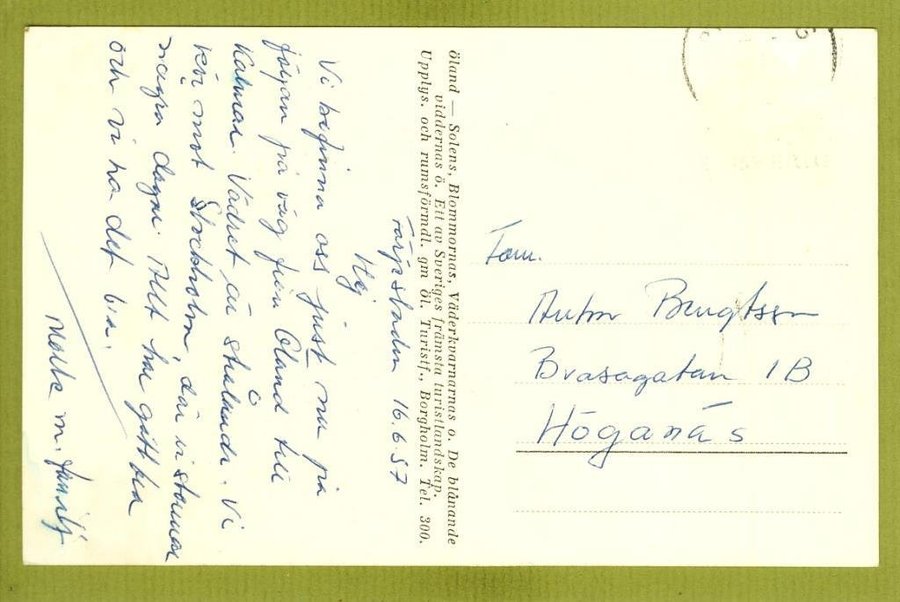 Färjestaden 16.6 57
Hej
Vi befinna oss just nu på
färjan på väg från Öland till
Kalmar. Vädret är strålande. Vi
kör mot Stockholm, där vi stannar
några dagar. Allt har gått bra
och vi ha det bra.
m. familj
Öland — Solens, Blommornas, Väderkvarnarnas o. De blånande
viddernas ö. Ett av Sveriges främsta turistlandskap.
Upplys. och rumsförmdl. gm Öl. Turistf., Borgholm. Tel. 300.
Fam.
Anton Bengtsson
Brasagatan 1B
Höganäs